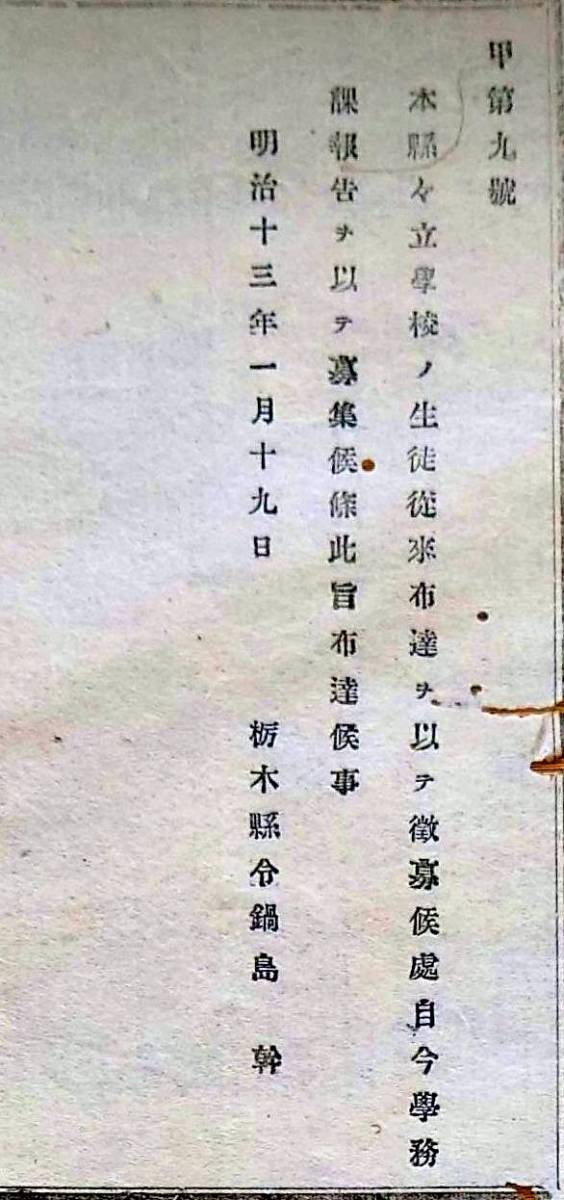 甲第九號
本縣々立學校ノ生徒從來布達ヲ以テ徵募候處自今學務
課報告ヲ以テ募集候條此旨布達候事
明治十三年一月十九日　栃木縣令鍋島　幹